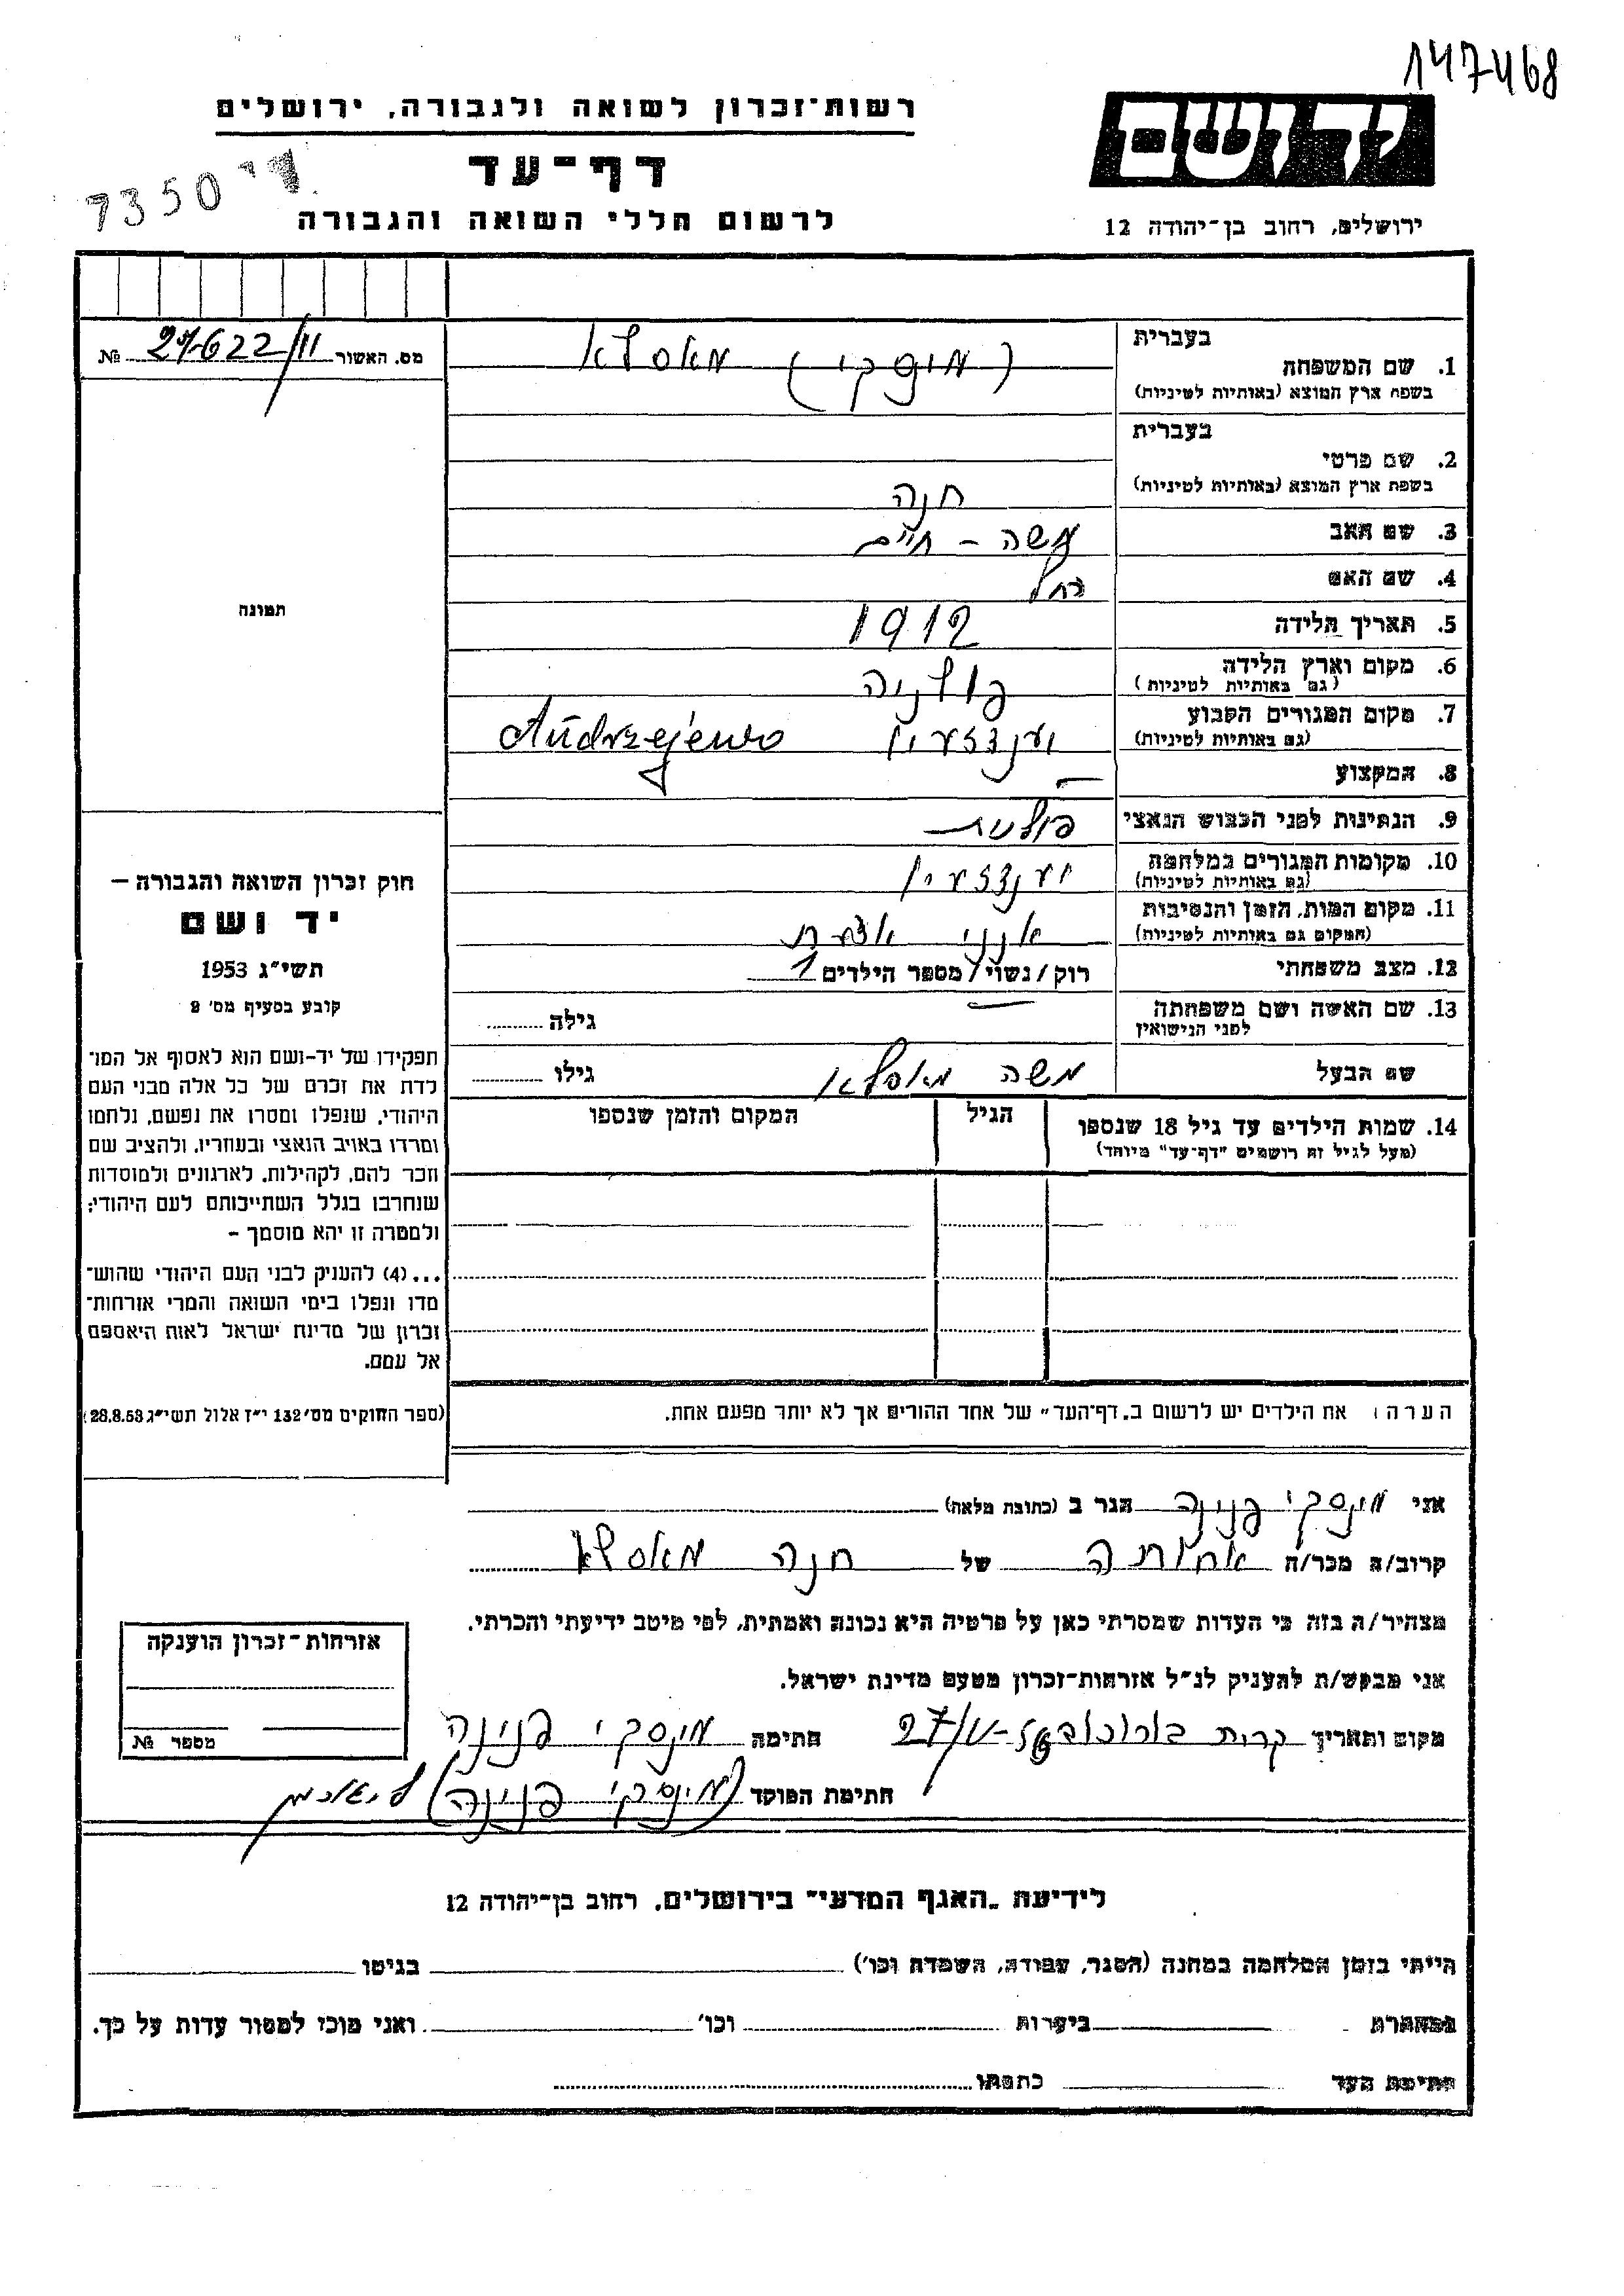 147468
רשות-זכרון לשואה ולגבורה, ירושלים
ידושם
דף-עד
7350
לרשום חללי השואה והגבורה
ירושלים, רחוב בן-יהודה 12
בעברית
1. שם המשפחה
(מינסקי) מאסלא
בשפת ארץ המוצא (באותיות לטיניות)
מס. האשור 622/11 №
בעברית
2. שם פרטי
בשפת ארץ המוצא (באותיות לטיניות)
חנה
3. שם האב משה - חיים
4. שם האם רחל
5. תאריך הלידה 1912
6. מקום וארץ הלידה פולניה
(גם באותיות לטיניות)
7. מקום המגורים הקבוע Andrzejewo
(גם באותיות לטיניות)
8. המקצוע —
9. הנתינות לפני הכבוש הנאצי פולנית
10. מקומות המגורים במלחמה
(גם באותיות לטיניות)
11. מקום המות, הזמן והנסיבות
(המקום גם באותיות לטיניות)
12. מצב משפחתי רוק/נשוי/מספר הילדים 1
13. שם האשה ושם משפחתה
לפני הנישואין
גילה
שם הבעל משה מאסלא גילו
14. שמות הילדים עד גיל 18 שנספו
(מעל לגיל זה רושמים "דף-עד" מיוחד)
הגיל
המקום והזמן שנספו
הערה: את הילדים יש לרשום ב"דף-העד" של אחד ההורים אך לא יותר מפעם אחת.
תמונה
חוק זכרון השואה והגבורה –
יד ושם
תשי"ג 1953
קובע בסעיף מס' 2
תפקידו של יד-ושם הוא לאסוף אל המו־
לדת את זכרם של כל אלה מבני העם
היהודי, שנפלו ומסרו את נפשם, נלחמו
ומרדו באויב הנאצי ובעוזריו, ולהציב שם
וזכר להם, לקהילות, לארגונים ולמוסדות
שנחרבו בגלל השתייכותם לעם היהודי;
ולמטרה זו יהא מוסמך –
...(4) להעניק לבני העם היהודי שהוש־
מדו ונפלו בימי השואה והמרי אזרחות־
זכרון של מדינת ישראל לאות היאספם
אל עמם.
(ספר החוקים מס' 132 י"ז אלול תשי"ג 28.8.53)
אני מינסקי פנינה הגר ב (כתובת מלאה)
קרוב/ה מכר/ה אחותה של חנה מאסלא
מצהיר/ה בזה כי העדות שמסרתי כאן על פרטיה היא נכונה ואמתית, לפי מיטב ידיעתי והכרתי.
אני מבקש/ת להעניק לנ"ל אזרחות-זכרון מטעם מדינת ישראל.
מקום ותאריך קרית 27/V-56 חתימה מינסקי פנינה
חתימת הפוקד (מינסקי פנינה)
אזרחות-זכרון הוענקה
מספר №
לידיעת "האגף המדעי" בירושלים, רחוב בן-יהודה 12
הייתי בזמן המלחמה במחנה (הסגר, עבודה, השמדה וכו') בגיטו
במחתרת ביערות וכו' ואני מוכן למסור עדות על כך.
חתימת העד כתבתו